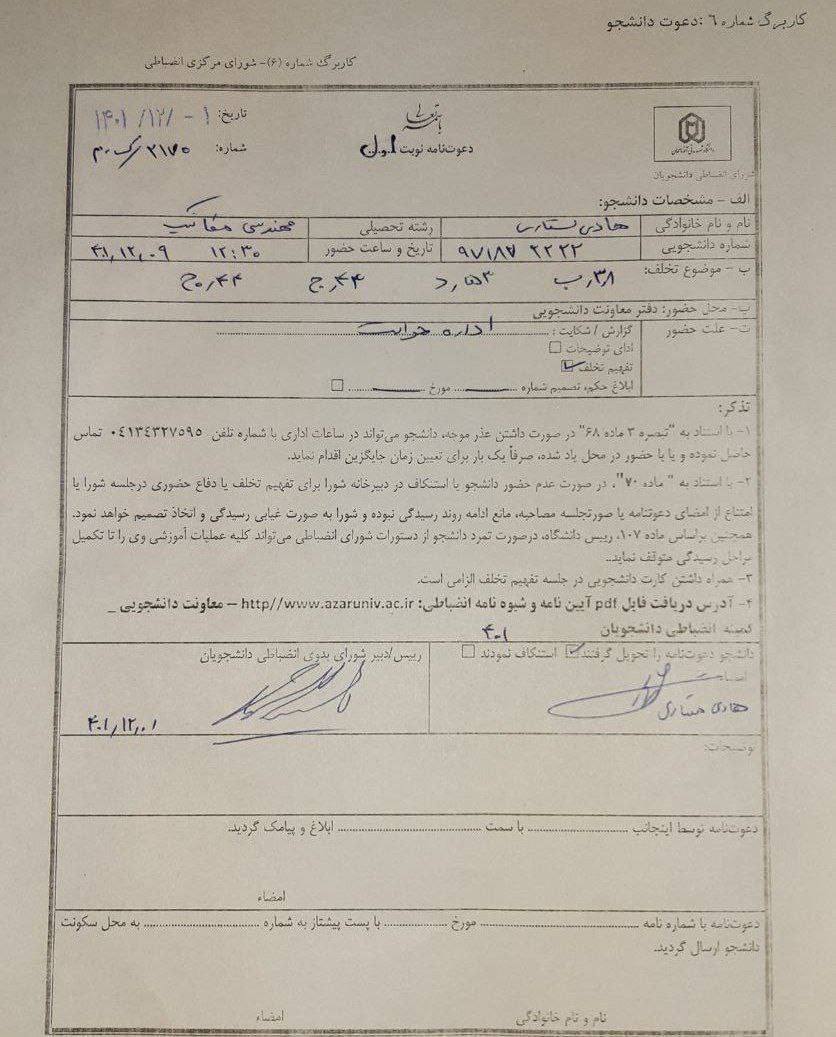 کاربرگ شماره ٦ :دعوت دانشجو
کاربرگ شماره (۶)- شورای مرکزی انضباطی
باسمه تعالی
تاریخ: ۱ - /۱۲/ ۱۴۰۱
دعوت‌نامه نوبت اول
شماره: ۲۱۷۵
شورای انضباطی دانشجویان
الف – مشخصات دانشجو:
نام و نام خانوادگی هادی رشته تحصیلی مهندسی مکانیک
شماره دانشجویی ۹۷۱۸۷ ۲۲۲۲ تاریخ و ساعت حضور ۱۲:۳۰ ۴۰۱,۱۲,۰۹
ب – موضوع تخلف: ۳۸,ب ۳۵,د ۴۴,ج ۴۴,ح
پ- محل حضور: دفتر معاونت دانشجویی
ت- علت حضور گزارش / شکایت : اداره حراست
ادای توضیحات
تفهیم تخلف
ابلاغ حکم، تصمیم شماره ........ مورخ ........
تذکر:
۱- با استناد به "تبصره ۳ ماده ۶۸" در صورت داشتن عذر موجه، دانشجو می‌تواند در ساعات اداری با شماره تلفن ۰٤۱۳٤۳۲۷٥۹٥ تماس
حاصل نموده و یا با حضور در محل یاد شده، صرفاً یک بار برای تعیین زمان جایگزین اقدام نماید.
۲- با استناد به " ماده ۷۰"، در صورت عدم حضور دانشجو یا استنکاف در دبیرخانه شورا برای تفهیم تخلف یا دفاع حضوری درجلسه شورا یا
امتناع از امضای دعوتنامه یا صورتجلسه مصاحبه، مانع ادامه روند رسیدگی نبوده و شورا به صورت غیابی رسیدگی و اتخاذ تصمیم خواهد نمود.
همچنین براساس ماده ۱۰۷، رییس دانشگاه، درصورت تمرد دانشجو از دستورات شورای انضباطی می‌تواند کلیه عملیات آموزشی وی را تا تکمیل
مراحل رسیدگی متوقف نماید..
۳- همراه داشتن کارت دانشجویی در جلسه تفهیم تخلف الزامی است.
۴- آدرس دریافت فایل pdf آیین نامه و شیوه نامه انضباطی: http//www.azaruniv.ac.ir – معاونت دانشجویی _
کمیته انضباطی دانشجویان
دانشجو دعوت‌نامه را تحویل گرفتند استنکاف نمودند
رییس/دبیر شورای بدوی انضباطی دانشجویان
امضاء
هادی
۴۰۱,۱۲,۰۱
توضیحات:
دعوت‌نامه توسط اینجانب ........ با سمت ........ ابلاغ و پیامک گردید.
امضاء
دعوت‌نامه با شماره نامه ........ مورخ ........ با پست پیشتاز به شماره ........ به محل سکونت
دانشجو ارسال گردید.
نام و نام خانوادگی امضاء